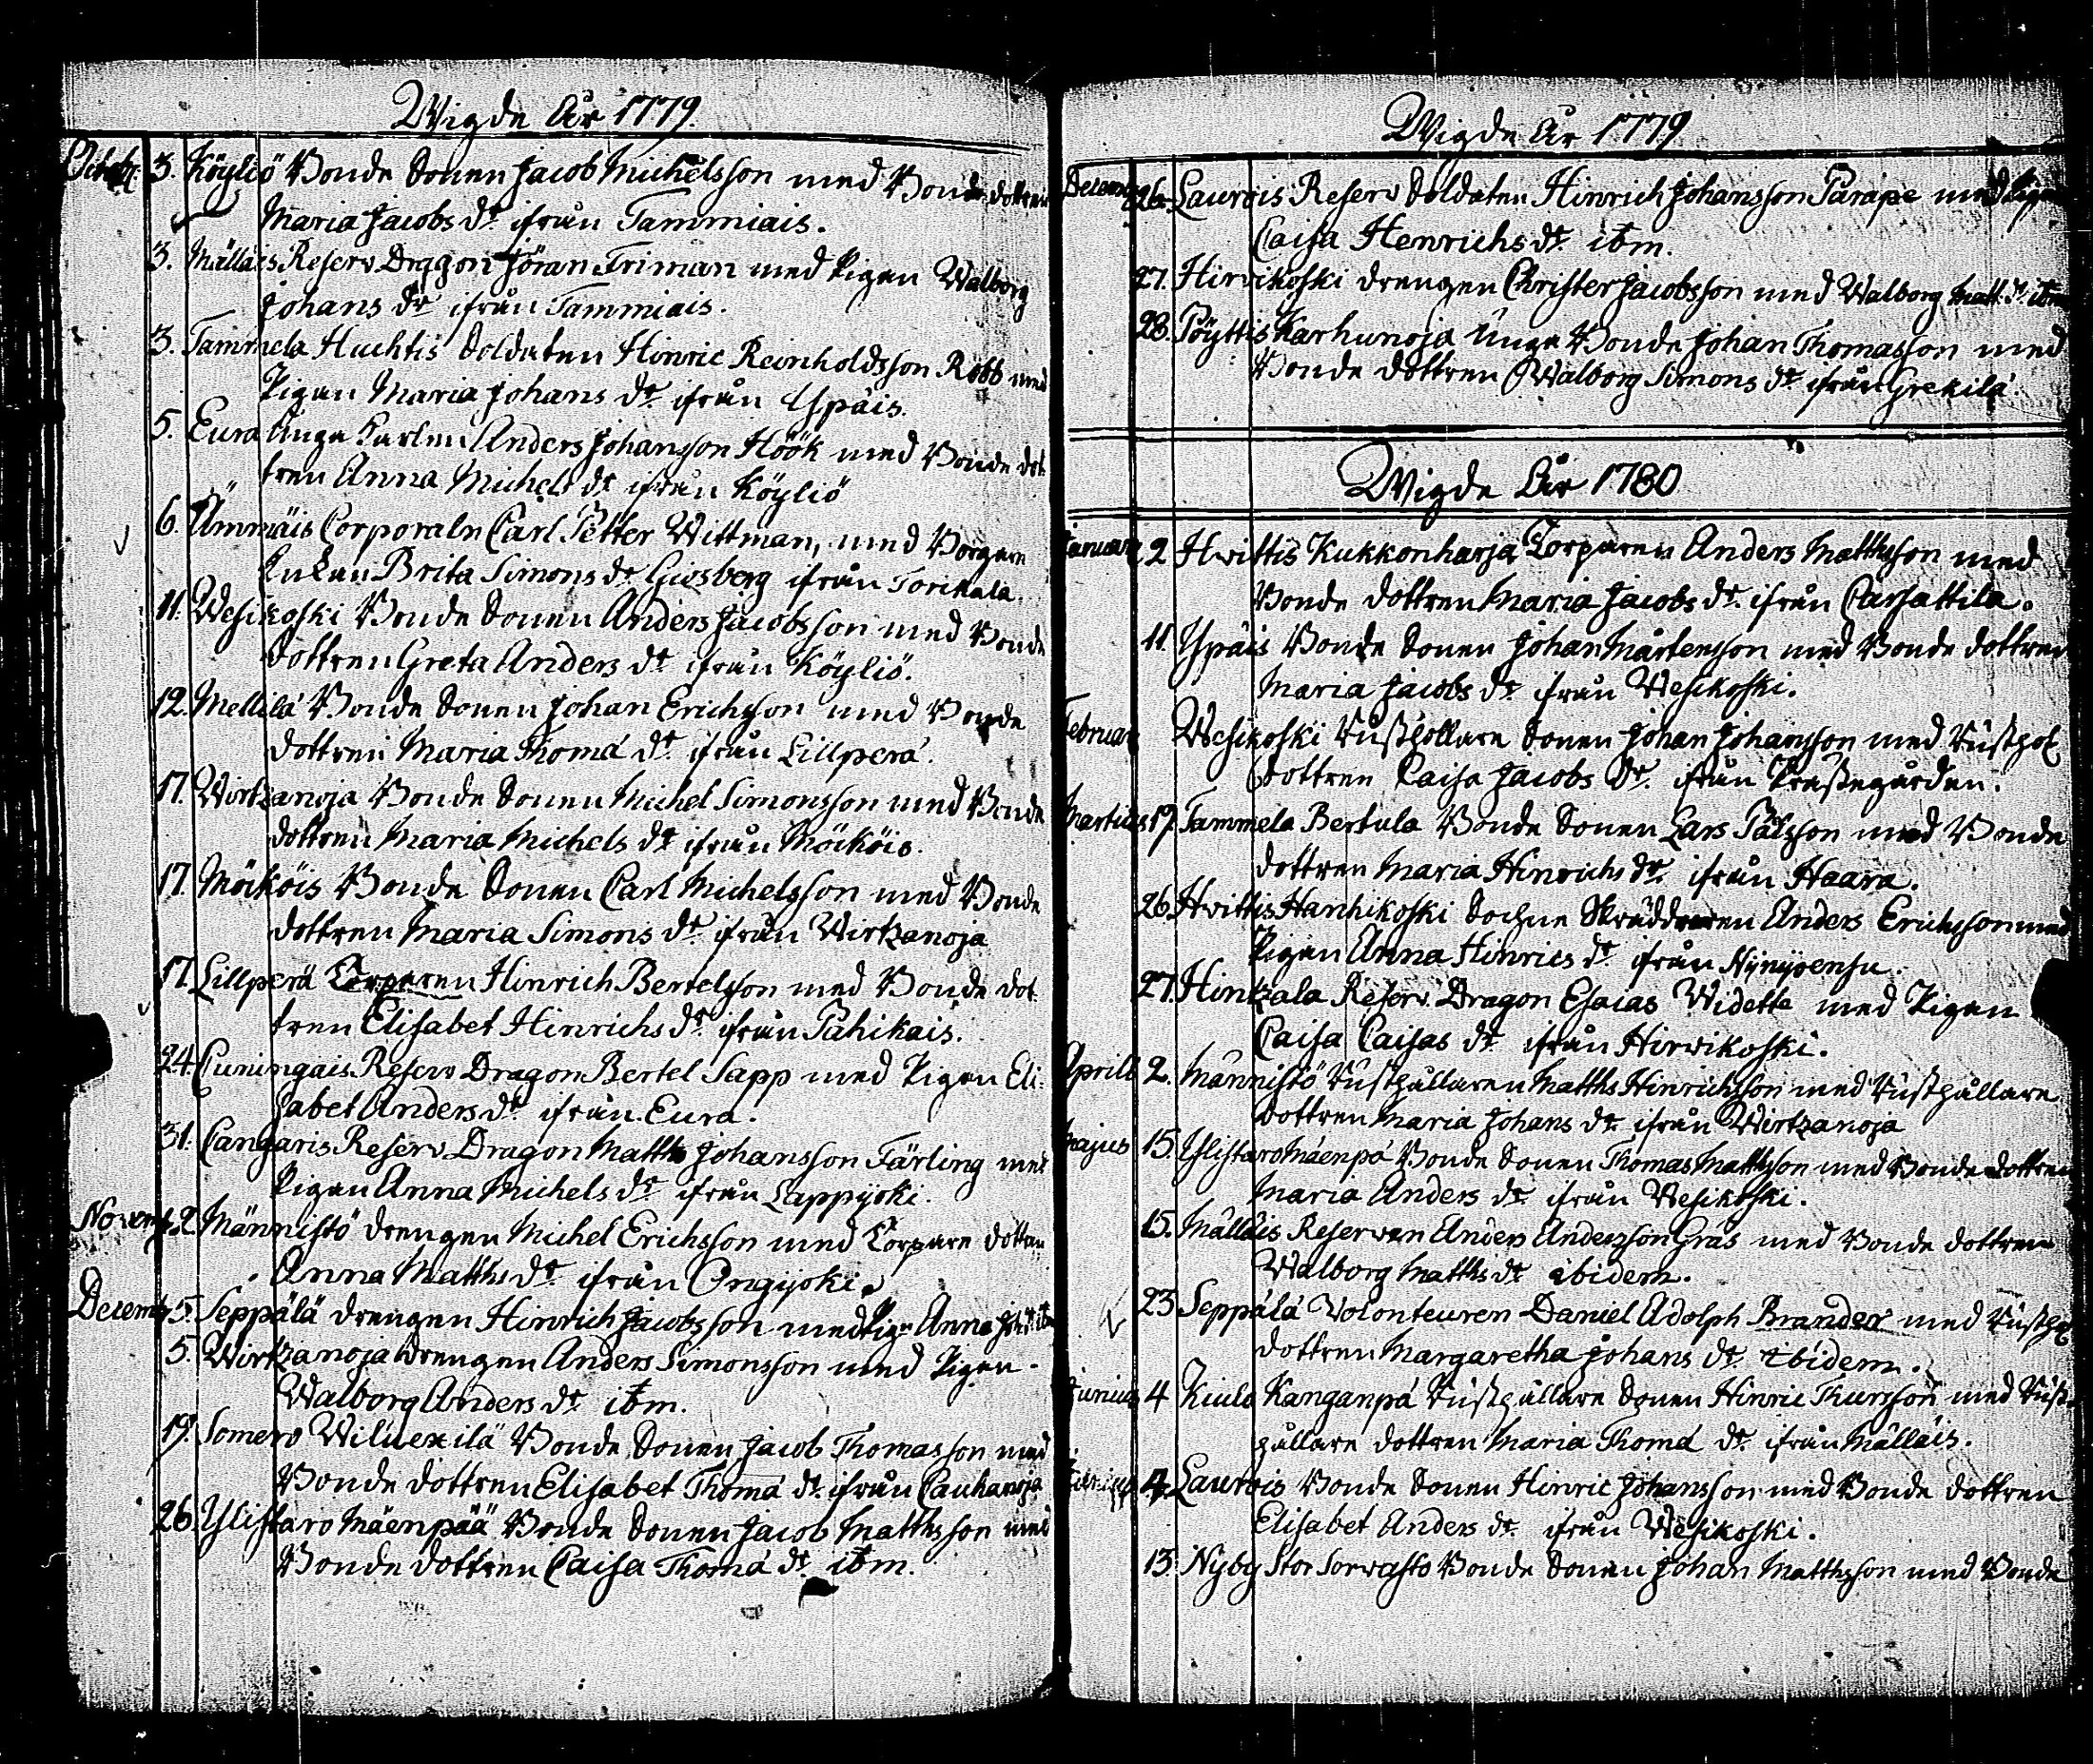 Wigde År 1779.
Octob: 3. Köyliö Bonde Sonen Jacob Michelsson med Bonde dottren
Maria Jacobs dr. ifrån Tammiais.
3. Mälläis Reserv Dragon Jöran Friman med Pigan Walborg
Johans dr ifrån Tammiais.
3. Tammela Huchtis Soldaten Hinric Reinholdsson Robb med
Pigan Maria Johans dr. ifrån Ypäis.
5. Eura Unga Karlen Anders Johansson Höök med Bonde dot
tren Anna Michels dr ifrån Köyliö
6. Ämmäis Corporaln Carl Petter Wittman, med Borgare
Enkan Brita Simons dr Giosberg ifrån Torikala
11. Wesikoski Bonde Sonen Anders Jacobsson med Bonde
dottren Greta Anders dr ifrån Köyliö.
12. Mellilä Bonde Sonen Johan Erichsson med Bonde
dottren Maria Thomä dr. ifrån Lillperä.
17. Wirtzanoja Bonde Sonen Michel Simonsson med Bonde
dottren Maria Michels dr ifrån Mäiköis.
17. Möiköis Bonde Sonen Carl Michelsson med Bonde
dottren Maria Simons dr. ifrån Wirtzanoja
17. Lillperä Torparen Hinrich Bertelsson med Bonde dot
tren Elisabet Hinrichs dr. ifrån Pahikais.
24. Cuningais Reserv Dragon Bertel Sapp med Pigan Eli-
sabet Anders dr. ifrån Eura.
31. Cangaris Reserv Dragon Matths Johansson Färling med
Pigan Anna Michels dr ifrån Lappijoki.
Novemb. 2. Männistö drengen Michel Erichsson med Torpare dottren
Anna Matths dr. ifrån Orgijoki.
Decemb. 5. Seppälä drengen Hinrich Jacobsson med Pig. Anna Joh. dr. itm
5. Wirtzanoja drengen Anders Simonsson med Pigan
Walborg Anders dr. itm.
19. Somero Bonde Sonen Jacob Thomasson med
Bonde dottren Elisabet Thomä dr. ifrån Cauhanoja
26. Ylistaro Mäenpää Bonde Sonen Jacob Matthsson med
Bonde dottren Caisa Thomä dr. itm.
Wigde År 1779
Decemb 26. Laurois Reserv Soldaten Hinrich Johansson Parape med Pigan
Caisa Henrichs dr. itm.
27. Hirvikoski drengen Christer Jacobsson med Walborg Matt. dr. itm
28. Pöyttis Karhunoja Unga Bonde Johan Thomasson med
Bonde dottren Walborg Simons dr. ifrån Grekilä.
Wigde År 1780
Januari 2 Hvittis Kukkonharja Torparen Anders Matthsson med
Bonde dottren Maria Jacobs dr. ifrån Carsattila.
11. Ypäis Bonde Sonen Johan Mårtensson med Bonde dottren
Maria Jacobs dr. ifrån Wesikoski.
Februari Wesikoski Rusthollare Sonen Johan Johansson med Rusthol.
dottren Caisa Jacobs dr. ifrån Prestegården.
Martius 19. Tammela Bertula Bonde Sonen Lars Pålsson med Bonde
dottren Maria Hinrichs dr. ifrån Haara.
26. Hvittis Hanhikoski Sochne Skräddaren Anders Erichsson med
Pigan Anna Hinrics dr ifrån
27. Hintzala Reserv Dragon Esaias Widette med Pigan
Caisa Caisas dr ifrån Hirvikoski.
Aprill 2. Männistö Rusthållaren Matths Hinrichsson med Rusthållare
dottren Maria Johans dr. ifrån Wirtzanoja
Majus 15. Ylistaro Mäenpä Bonde Sonen Thomas Matthsson med Bonde dottren
Maria Anders dr ifrån Wesikoski.
15. Mälläis Reserven Anders Andersson Gräs med Bonde dottren
Walborg Matths dr. ibidem.
23 Seppälä Volonteuren Daniel Adolph Brander med Rusth.
dottren Margaretha Johans dr. ibidem.
Junius 4 Kiulo Kanganpä Rusthållare Sonen Hinric Thursson med Rust-
hållare dottren Maria Thomä dr. ifrån Mälläis.
Junius 4. Laurois Bonde Sonen Hinric Johansson med Bonde dottren
Elisabet Anders dr. ifrån Wesikoski.
13. Nyby Stor Sorvasto Bonde Sonen Johan Matthsson med Bonde